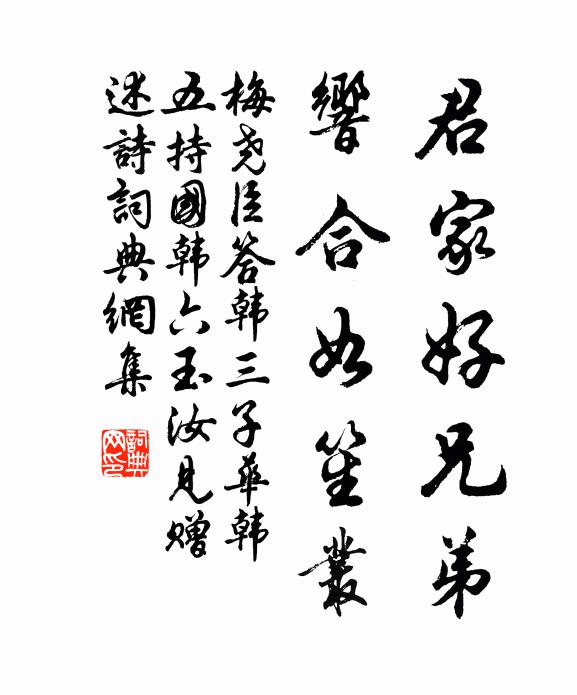 君家好兄弟
響合如笙叢
梅堯臣答韩三子華韩
五持國韩六玉汝見赠
述詩詞典網集
詞典網印